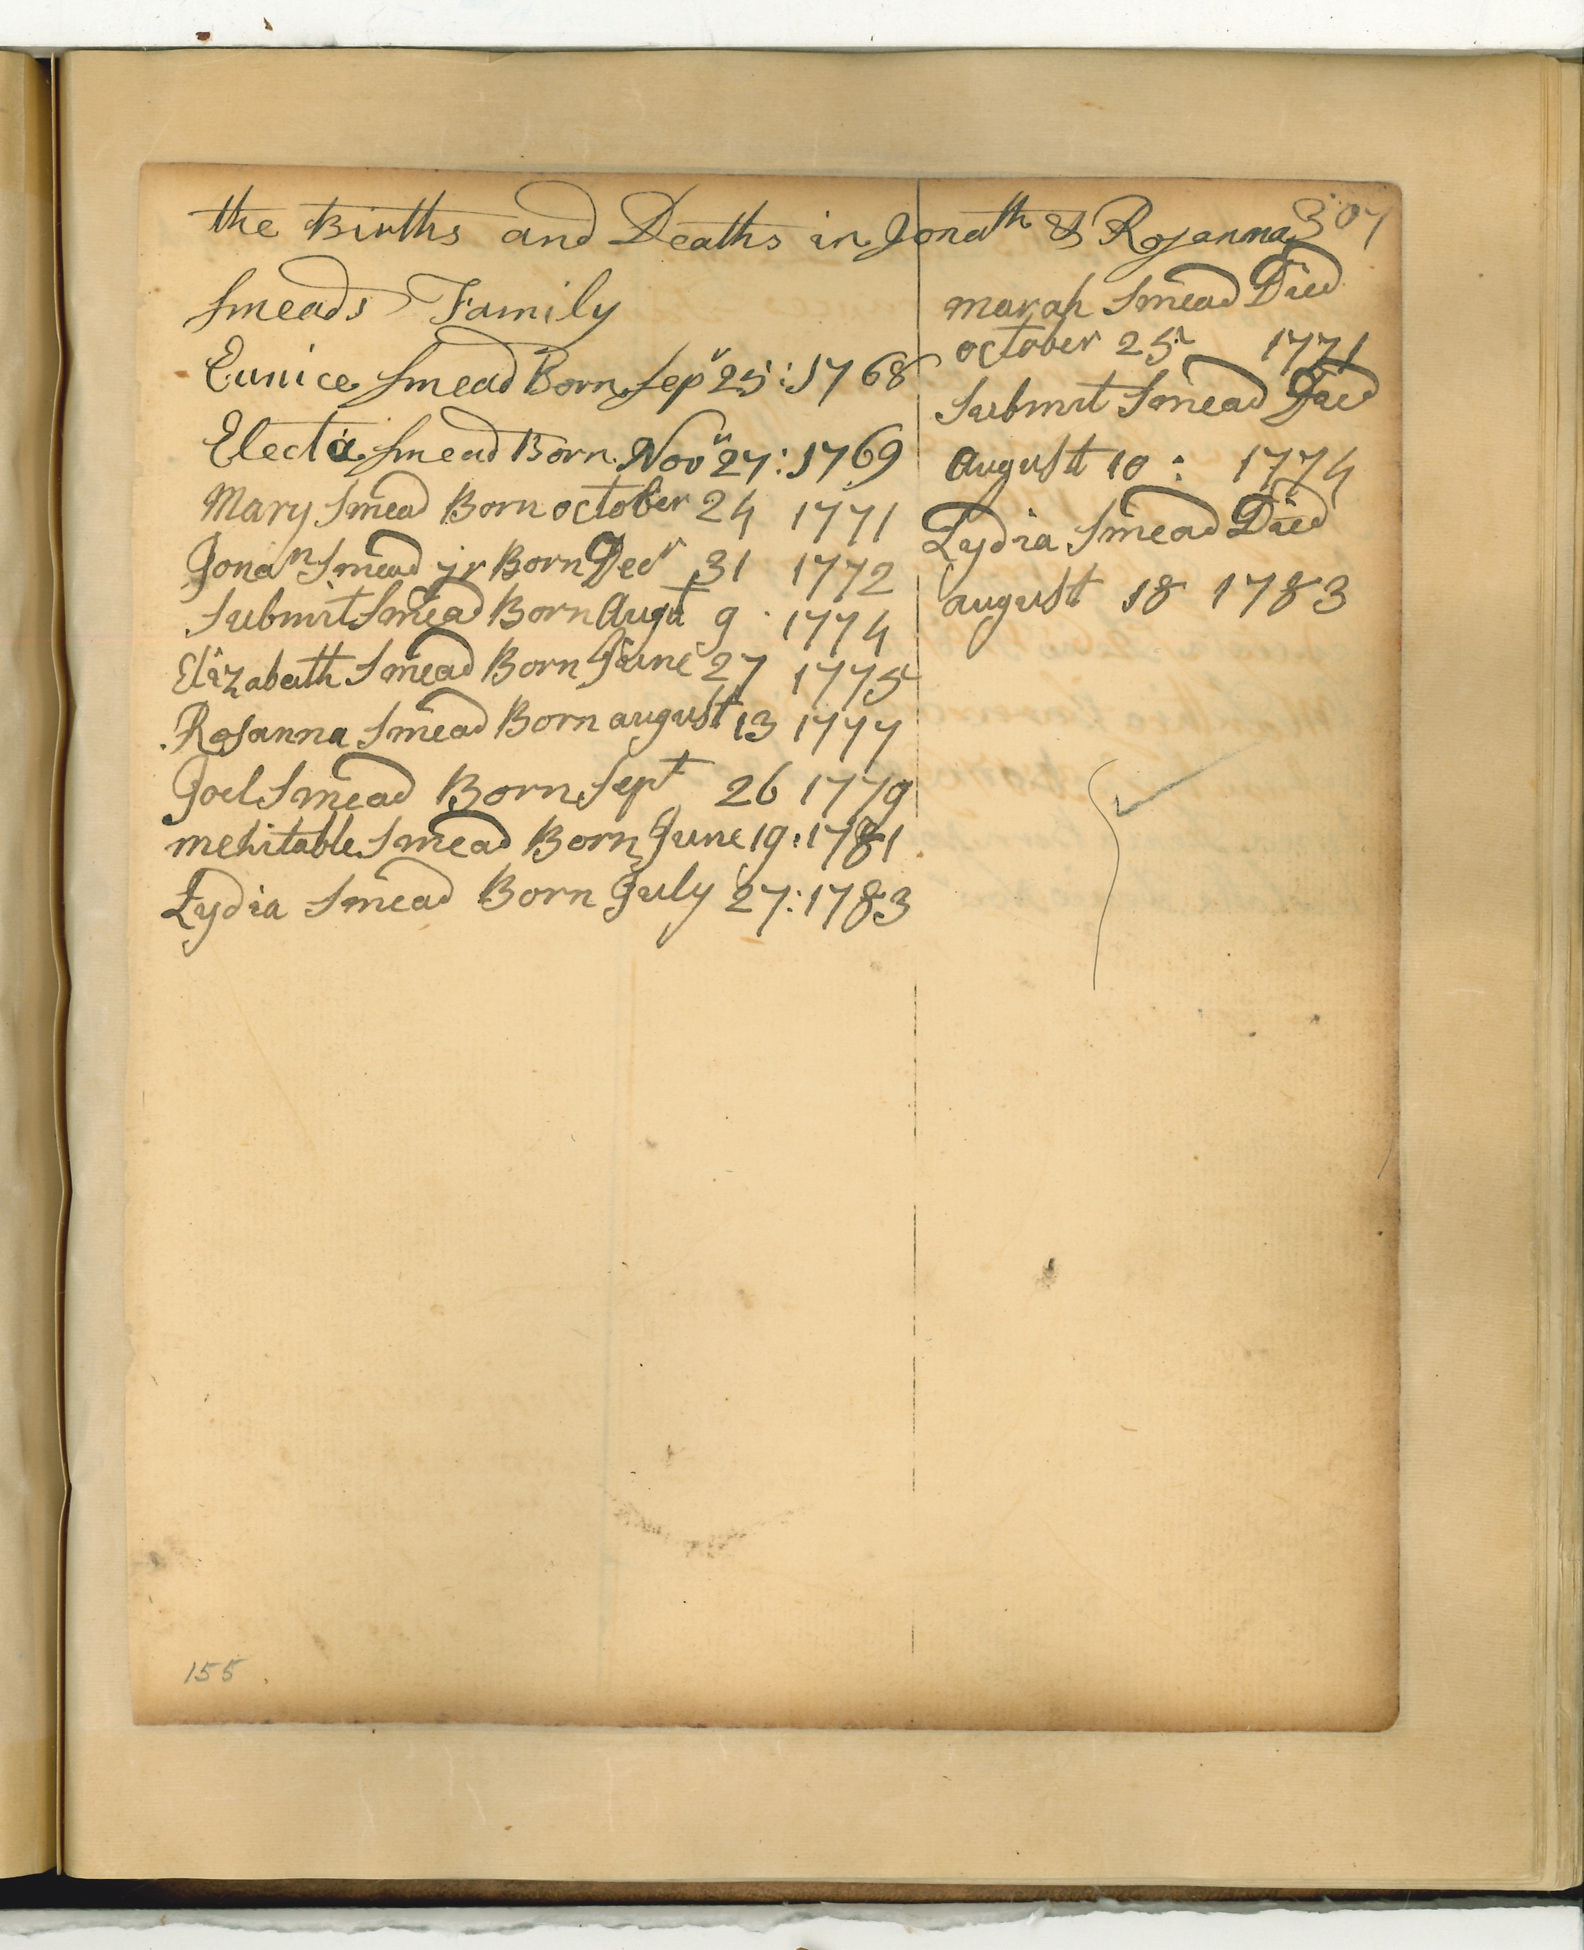 the Births and Deaths in Jonath & Rosanna 307
Smeads Family
Eunice Smead Born Sepr 25: 1768
Electa Smead Born Novr 27: 1769
Mary Smead Born october 24 1771
Jonan Smead jr Born Decr 31 1772
Submit Smead Born Augt 9 1774
Elizabeth Smead Born June 27 1775
Rosanna Smead Born august 13 1777
Joel Smead Born Sept 26 1779
mehitable Smead Born June 19: 1781
Lydia Smead Born July 27: 1783
marah Smead Died
october 25 1771
Submit Smead Died
August 10: 1774
Lydia Smead Died
august 18 1783
155